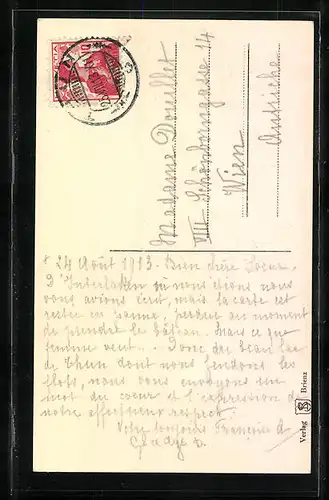 Madame Douillet
VIII Schönborngasse 14
Wien
Autriche
24 Août 1913. Bien chère Soeur,
D'Interlaken où nous étions nous
vous avions écrit, mais la carte est
restée en panne, perdue au moment
de prendre le bateau. Mais ce que
femme veut ... Donc du beau lac
de Thun dont nous fendons les
flots, nous vous envoyons un
mot du coeur et l'expression de
notre affectueux respect.
Votre toujours François
Verlag S Brienz